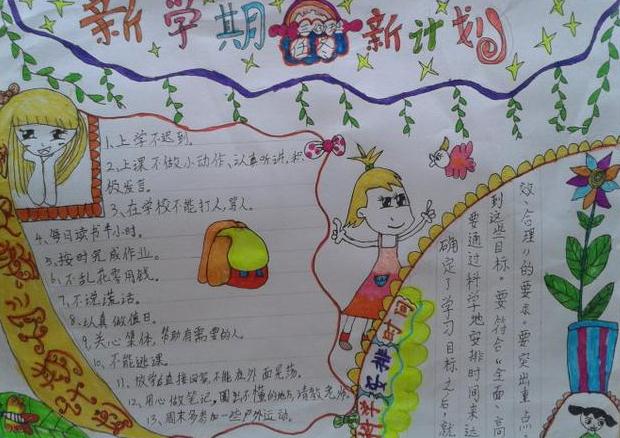 新学期 新计划
1、上学不迟到.
2、上课不做小动作、认真听讲,积
极发言。
3、在学校不能打人,骂人。
4、每日读书半小时。
5、按时完成作业。
6、不乱花零用钱。
7、不说谎话。
8、认真做值日。
9、关心集体,帮助有需要的人
10、不能逃课。
11、放学后直接回家,不能在外面晃荡。
12、用心做笔记,圈出不懂的地方,请教老师
13、周末多参加一些户外运动。
科学安排时间
确定了学习目标之后,就
要通过科学地安排时间来达
到这些目标。要符合“全面、高
效、合理”的要求。要突出重点,